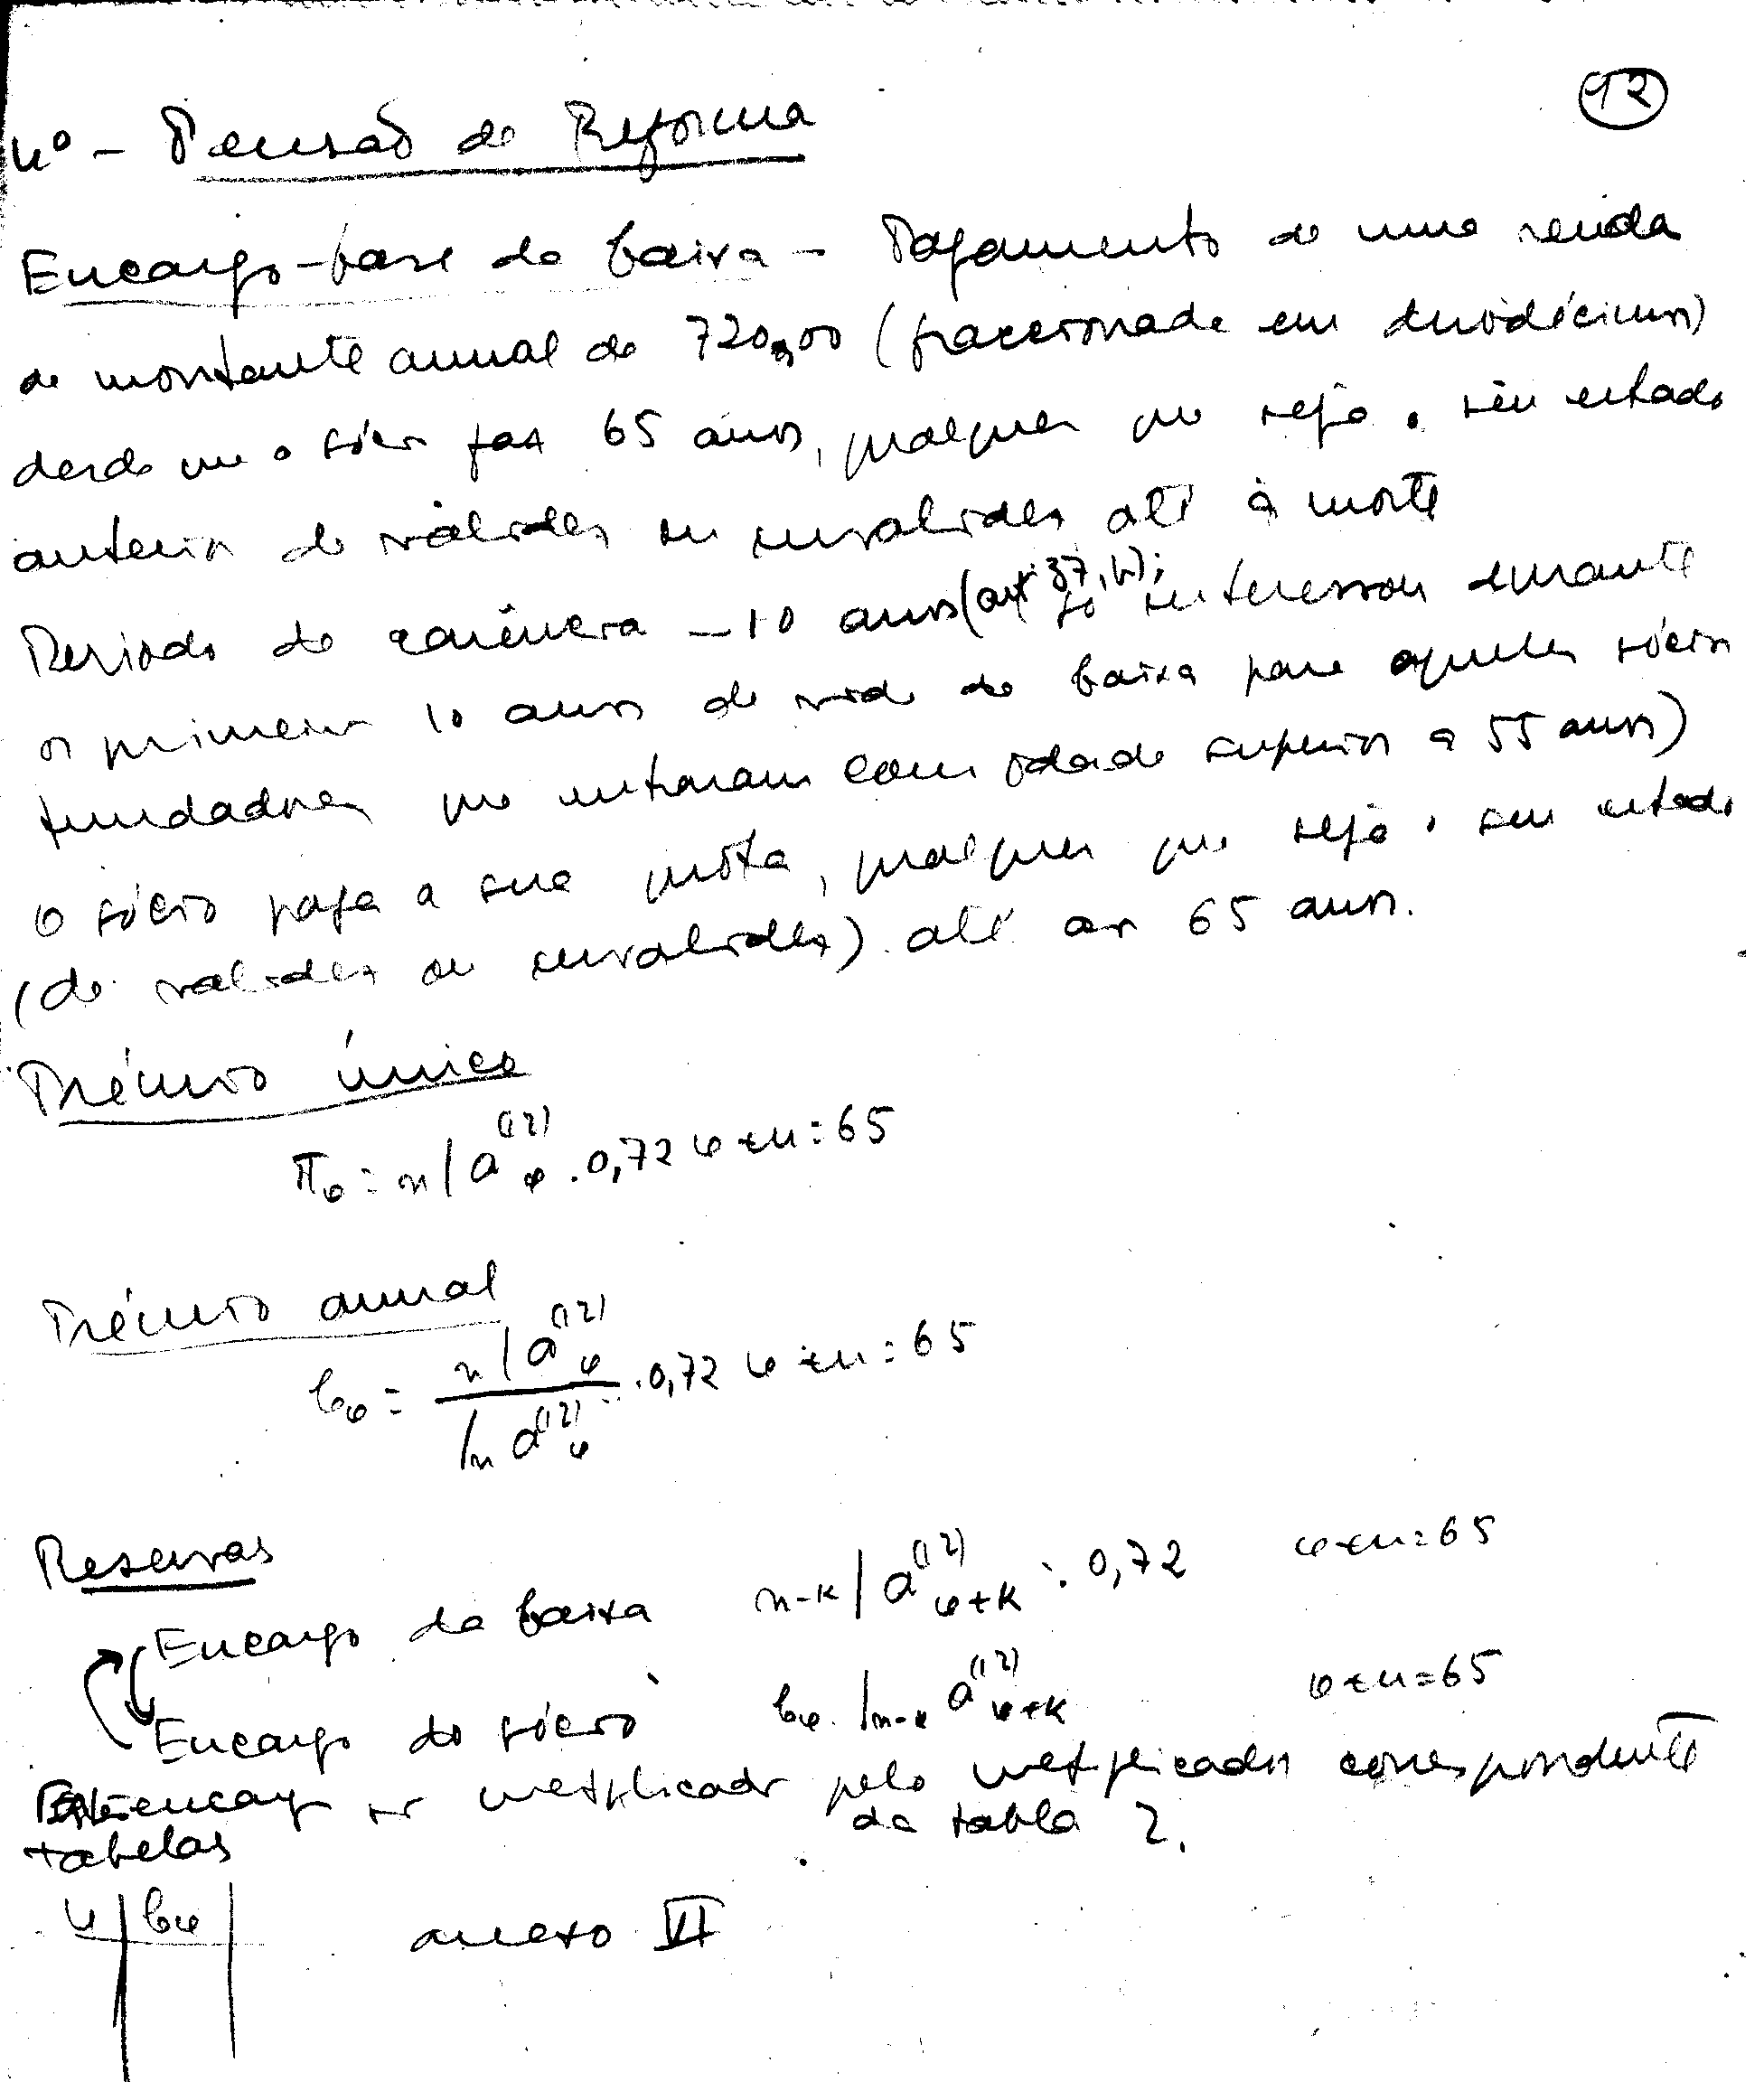 12
4º - Pensão de Reforma
Encargo-base da baixa - Pagamento de uma renda
de montante anual de 720,00 (fraccionada em duodécimos)
desde que o sócio faz 65 anos, qualquer que seja o seu estado
anterior de validez ou invalidez até à morte
Periodo de carência - 10 anos (artº 37, b); só interessou durante
os primeiros 10 anos de vida da baixa para aqueles sócios
fundadores que entraram com idade superior a 55 anos)
O sócio paga a sua quota, qualquer que seja o seu estado
(de validez ou invalidez) até aos 65 anos.
Prémio único
π φ = n/a^(12) φ . 0,72 φ+n = 65
Prémio anual
b φ = n/a^(12) φ / /n a^(12) φ . 0,72 φ+n = 65
Reservas
Encargo da baixa n-k/a^(12) φ+k . 0,72 φ+n = 65
Encargo do sócio b φ . /n-k a^(12) φ+k φ+n = 65
encargo multiplicador pelo multiplicador correspondente
da tabla 2.
tabelas
φ | b φ |
anexo VI